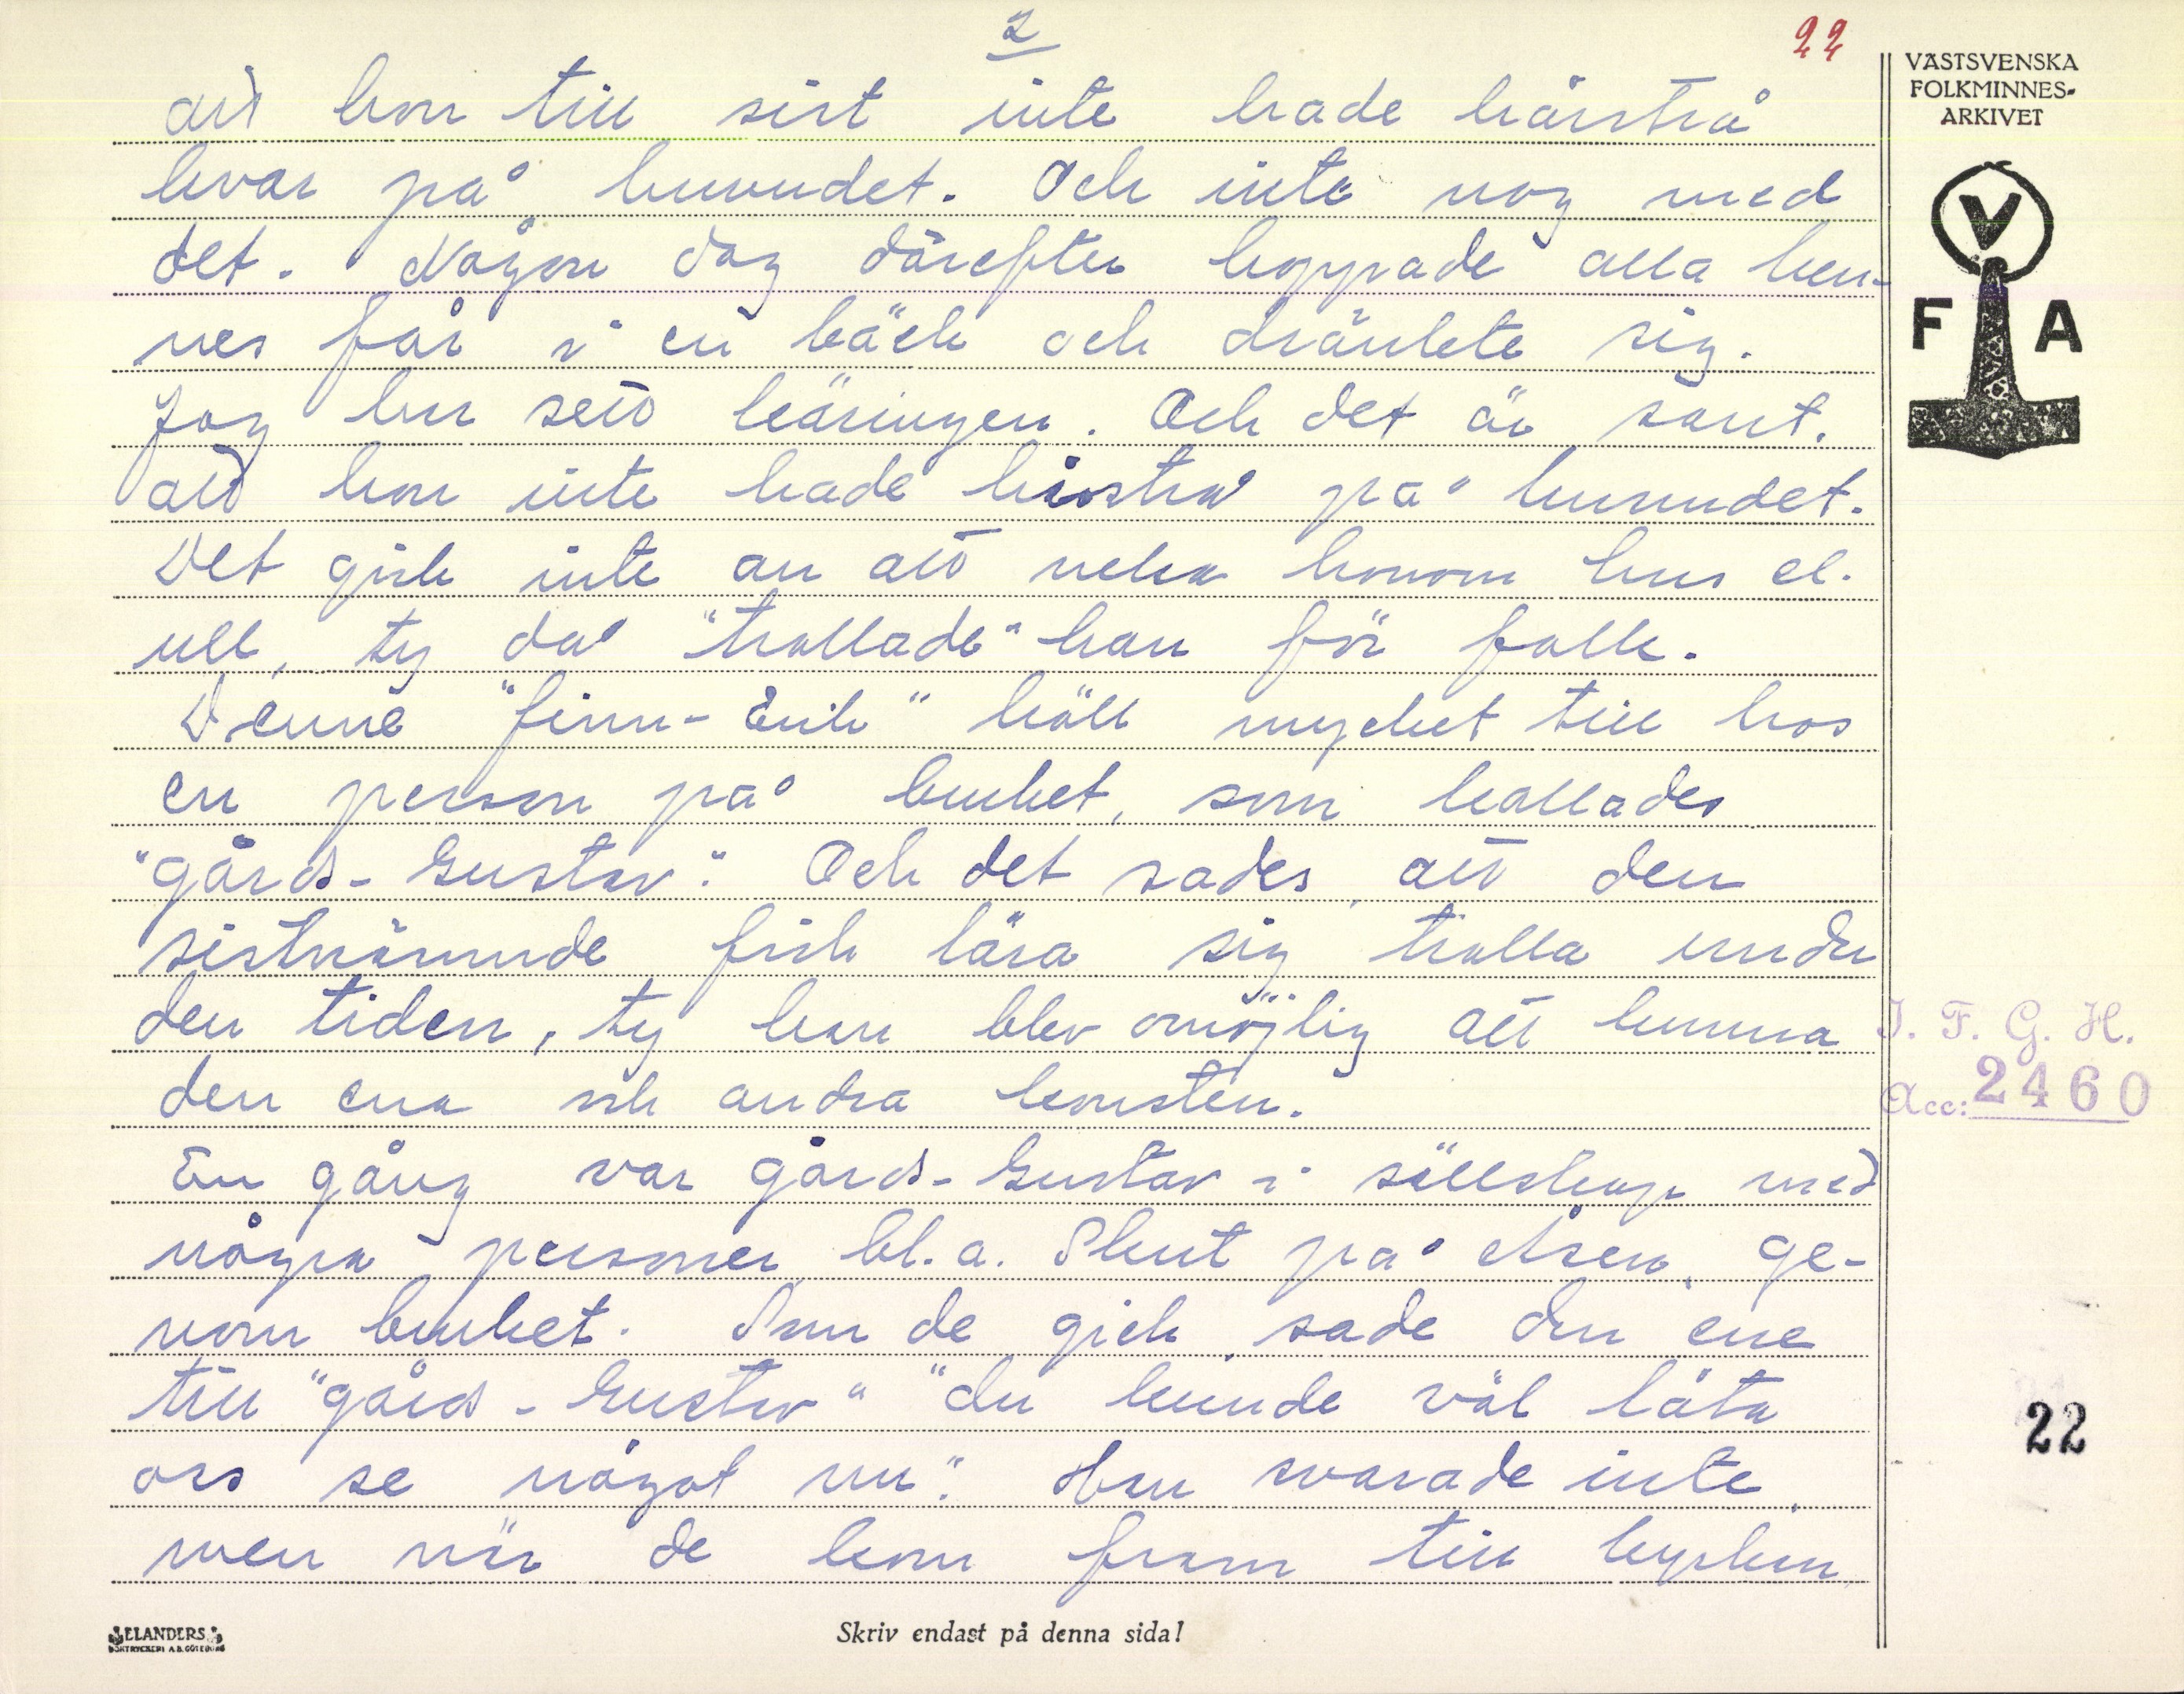 2
22
VÄSTSVENSKA
FOLKMINNES-
ARKIVET
V
F A
att hon till sist inte hade hårstrå
kvar på huvudet. Och inte nog med
det. Någon dag därefter hoppade alla hen-
nes får i en bäck och dränkte sig.
Jag har sett käringen. Och det är sant,
att hon inte hade hårstrå på huvudet.
Det gick inte an att neka honom hus el.
ull, ty då "trollade" han för folk.
Denne "finn-Erik" höll mycket till hos
en person på berket, som kallades
"gårds-Gustav". Och det sades, att den
sistnämnde fick lära sig trolla under
den tiden, ty han blev omöjlig att kunna
den ena och andra konsten.
En gång var gårds-Gustav i sällskap med
några personer, bl.a. Skut på Åsen, ge-
nom berket. Som de gick, sade den ene
till "gårds-Gustav" "du kunde väl låta
oss se något nu". Han svarade inte,
men när de kom fram till kyrkan,
I. F. G. H.
Acc: 2460
22
ELANDERS
BOKTRYCKERI A.B. GÖTEBORG
Skriv endast på denna sida!